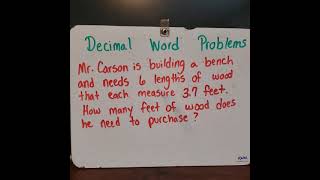 Decimal Word Problems
Mr. Carson is building a bench
and needs 6 lengths of wood
that each measure 3.7 feet.
How many feet of wood does
he need to purchase?